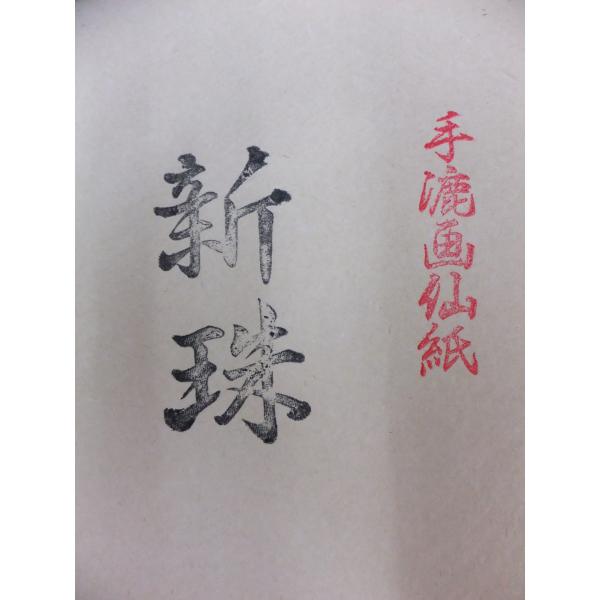 手漉画仙紙
新珠